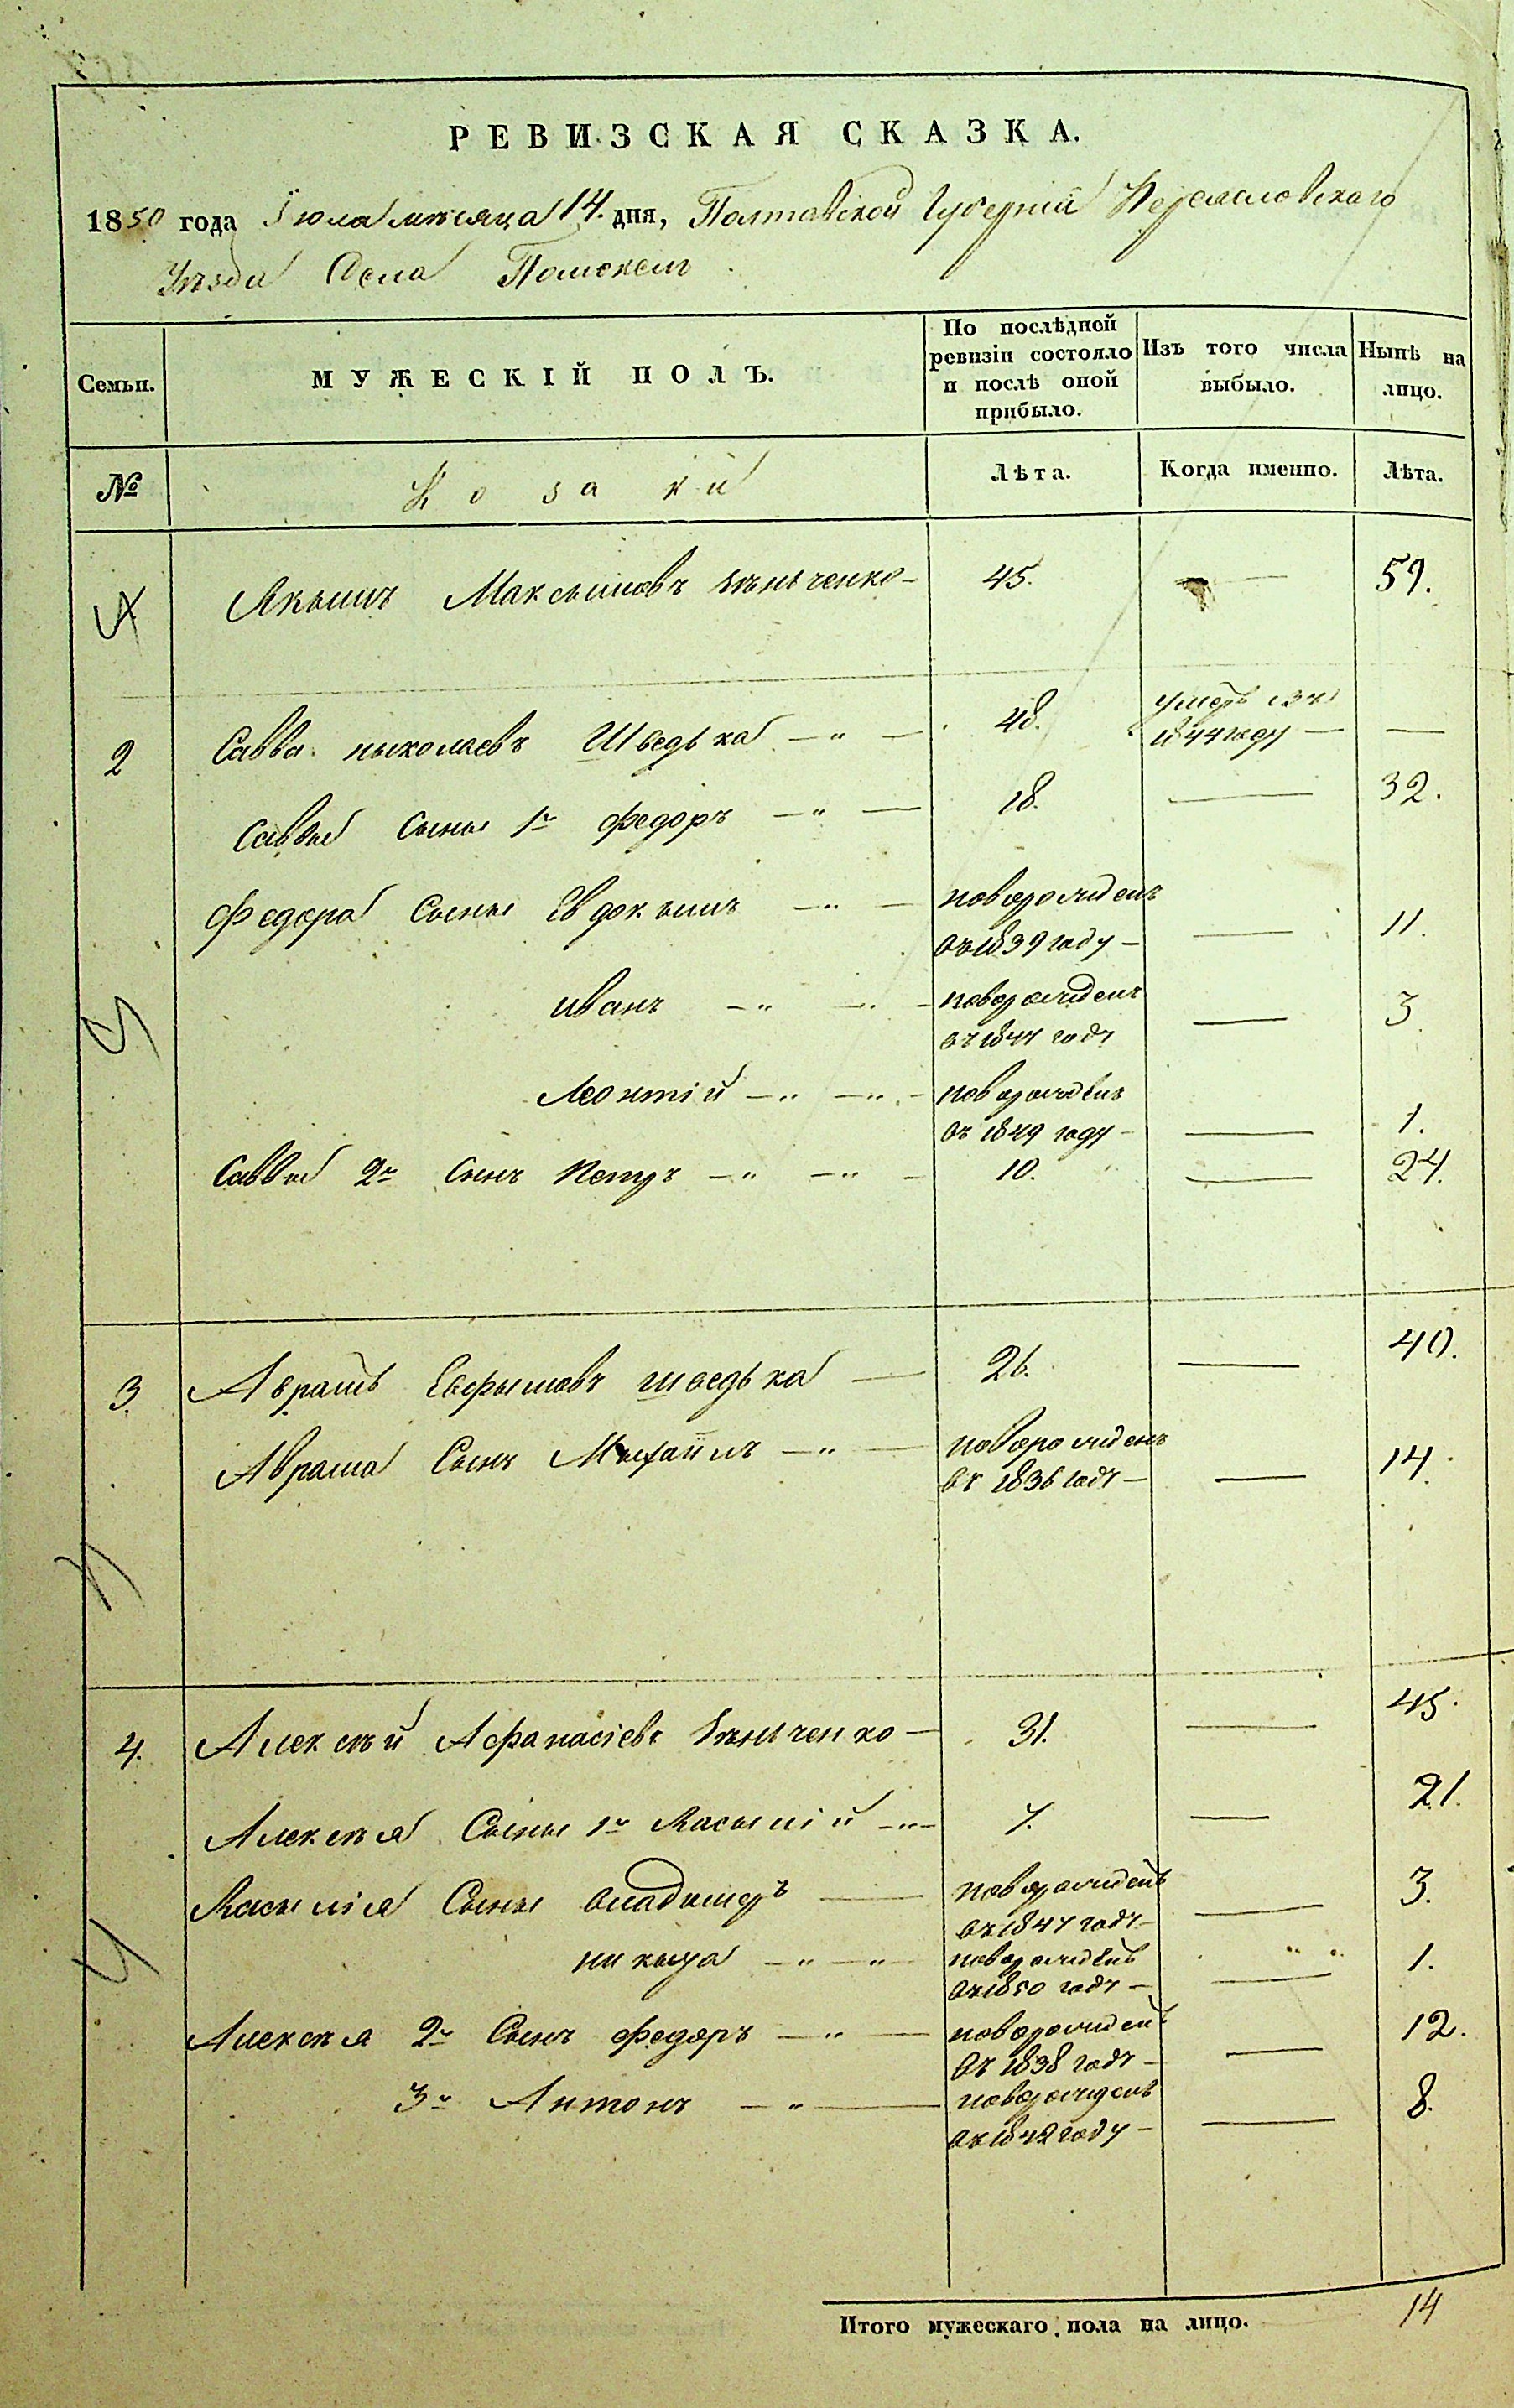 РЕВИЗСКАЯ СКАЗКА.
1850 года Іюла месяца 14. дня, Полтавской Губерніи Переяславского
Уезда Села Помокель
Семьи. МУЖЕСКІЙ ПОЛЪ. По послѣдней ревизіи состояло и послѣ оной прибыло. Изъ того числа выбыло. Нынѣ на лицо.
№ Козаки Лѣта. Когда именно. Лѣта.
Якымъ Максымовъ 45. — 59.
2 Савва ныколаевъ Шведька —„— 48. умеръ
в 44 году — —
Саввы Сыны 1й федоръ —„— 18. — 32.
Федора Сыны Евдокымъ —„— новорожденъ
въ 1839 году — — 11.
иванъ —„ —„— новорожденъ
въ 1847 году — 3
Леонтій —„ —„— новорожденъ
въ 1849 году — — 1.
Саввы 2й Сынъ Петръ —„ —„— 10. — 24.
3. Аврамъ Евфымовъ шведька — 26. — 40.
Аврама Сынъ Мыхаилъ —„— новорожденъ
въ 1836 году — — 14.
4. Алексѣй Афанасіевъ — 31. — 45.
Алексѣя Сыны 1й Васылій —„— 7. — 21.
Васылія Сыны владымеръ — новорожденъ
въ 1847 году — — 3.
никыта —„—„— новорожденъ
въ 1850 году — — 1.
Алексѣя 2й Сынъ федоръ —„— новорожденъ
въ 1838 году — — 12.
3й Антонъ —„— новорожденъ
въ 1842 году — — 8.
Итого мужескаго пола на лицо. 14